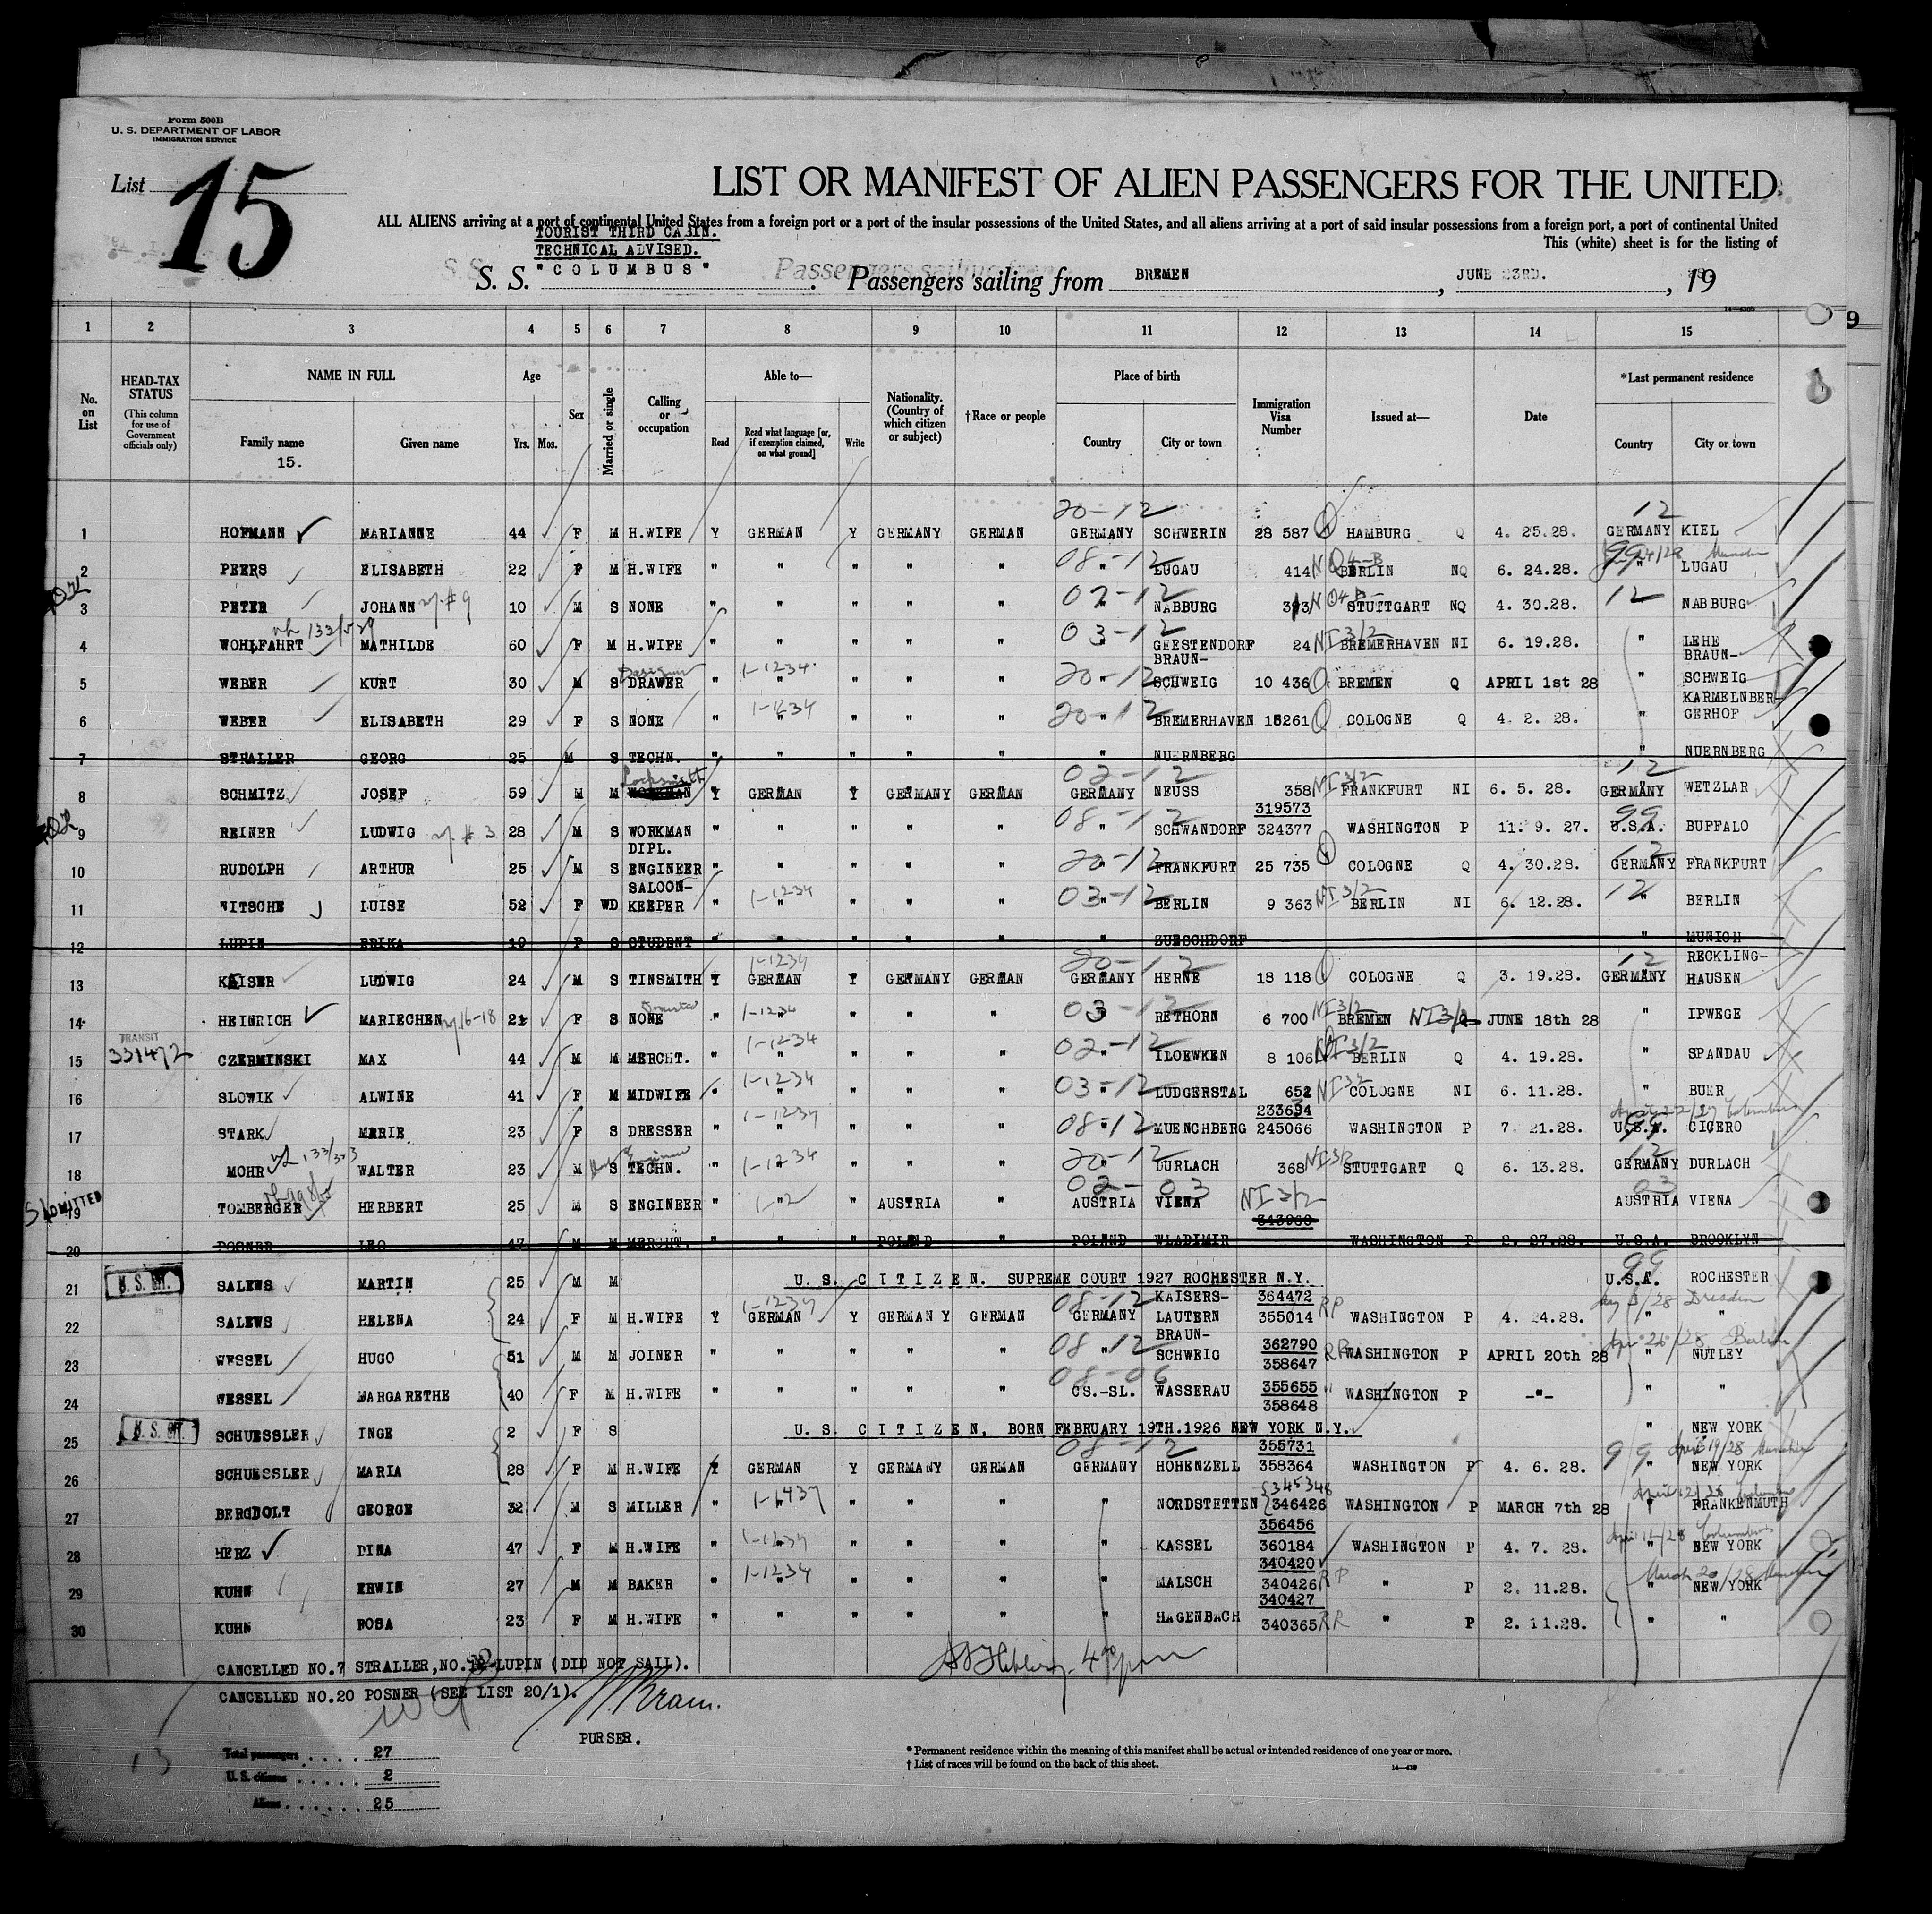 Form 500B
U. S. DEPARTMENT OF LABOR
IMMIGRATION SERVICE
List 15
LIST OR MANIFEST OF ALIEN PASSENGERS FOR THE UNITED
ALL ALIENS arriving at a port of continental United States from a foreign port or a port of the insular possessions of the United States, and all aliens arriving at a port of said insular possessions from a foreign port, a port of continental United
TOURIST THIRD CABIN.
This (white) sheet is for the listing of
TECHNICAL ADVISED.
S. S. "COLUMBUS" Passengers sailing from BREMEN, JUNE 23RD., 19 28
1 2 3 4 5 6 7 8 9 10 11 12 13 14 15
No. on List
HEAD-TAX STATUS (This column for use of Government officials only)
NAME IN FULL
Family name
Given name
15.
Age
Yrs. Mos.
Sex
Married or single
Calling or occupation
Able to—
Read
Read what language [or, if exemption claimed, on what ground]
Write
Nationality. (Country of which citizen or subject)
†Race or people
Place of birth
Country
City or town
Immigration Visa Number
Issued at—
Date
*Last permanent residence
Country
City or town
20-12 12
1 HOFMANN MARIANNE 44 F M H.WIFE Y GERMAN Y GERMANY GERMAN GERMANY SCHWERIN 28 587 HAMBURG Q 4. 25.28. GERMANY KIEL
08-12
2 PEERS ELISABETH 22 F M H.WIFE " " " " " " LUGAU 414 BERLIN NQ 6. 24.28. " LUGAU
3 PETER JOHANN 10 M S NONE " " " " " " NABBURG 393 STUTTGART NQ 4. 30.28. 12 NABBURG
03-12
4 WOHLFAHRT MATHILDE 60 F M H.WIFE " " " " " GEESTENDORF 24 NI 3/2 BREMERHAVEN NI 6. 19.28. " LEHE
5 WEBER KURT 30 M S DRAWER " 1-1234 " " " 20-12 BRAUN-SCHWEIG 10 436 BREMEN Q APRIL 1st 28 " BRAUN-SCHWEIG
6 WEBER ELISABETH 29 F S NONE " " " " 20-12 BREMERHAVEN 15261 COLOGNE Q 4. 2. 28. " KARMELNBER-GERHOF
7 STRALLER GEORG 25 M S TECHN. " " " " " " NUERNBERG " NUERNBERG
Locksmith 02-12 12
8 SCHMITZ JOSEF 59 M M WORKMAN Y GERMAN Y GERMANY GERMAN GERMANY NEUSS 358 NI 3/2 FRANKFURT NI 6. 5. 28. GERMANY WETZLAR
319573
9 REINER LUDWIG 28 M S WORKMAN " " " " " 08-12 SCHWANDORF 324377 WASHINGTON P 11. 9. 27. U.S.A. BUFFALO
10 RUDOLPH ARTHUR 25 M S DIPL. ENGINEER " " " " " 20-12 FRANKFURT 25 735 COLOGNE Q 4. 30.28. GERMANY FRANKFURT
11 NITSCHE LUISE 52 F WD SALOON-KEEPER " 1-1234 " " " 03-12 BERLIN 9 363 NI 3/2 BERLIN NI 6. 12.28. " BERLIN
12 LUPIN ERIKA 19 F S STUDENT " " " " " " ZUESCHDORF " MUNICH
13 KAISER LUDWIG 24 M S TINSMITH Y GERMAN Y GERMANY GERMAN GERMANY HERNE 18 118 COLOGNE Q 3. 19.28. GERMANY RECKLING-HAUSEN
14 HEINRICH MARIECHEN 21 F S NONE " 1-1234 " " " 03-12 RETHORN 6 700 NI 3/2 BREMEN NI 3/2 JUNE 18th 28 " IPWEGE
TRANSIT
331472
15 CZERMINSKI MAX 44 M M MERCHT. " 1-1234 " " " 02-12 ILOEWKEN 8 106 BERLIN Q 4. 19.28. " SPANDAU
16 SLOWIK ALWINE 41 F M MIDWIFE " 1-1234 " " " 03-12 LUDGERSTAL 652 NI 32 COLOGNE NI 6. 11.28. " BUER
233694
17 STARK MARIE 23 F S DRESSER " 1-1234 " " " 08-12 MUENCHBERG 245066 WASHINGTON P 7. 21.28. U.S.A. CICERO
18 MOHR WALTER 23 M S TECHN. " 1-1234 " " " 20-12 DURLACH 368 NI 3/2 STUTTGART Q 6. 13.28. GERMANY DURLACH
ADMITTED
19 TOMBERGER HERBERT 25 M S ENGINEER " 1-2 " AUSTRIA " AUSTRIA VIENA NI 3/2 AUSTRIA VIENA
343960
20 POSNER LEO 47 M M MERCHT. " " " POLAND " POLAND WLADIMIR WASHINGTON P 2. 27.28. U.S.A. BROOKLYN
21 U. S. CIT. SALEWS MARTIN 25 M M U. S. CITIZEN. SUPREME COURT 1927 ROCHESTER N.Y. U.S.A. ROCHESTER
364472
22 SALEWS HELENA 24 F M H.WIFE Y GERMAN Y GERMANY GERMAN GERMANY KAISERS-LAUTERN 355014 RP WASHINGTON P 4. 24.28. " "
362790
23 WESSEL HUGO 51 M M JOINER " " " " " " BRAUN-SCHWEIG 358647 WASHINGTON P APRIL 20th 28 " NUTLEY
355655
24 WESSEL MARGARETHE 40 F M H.WIFE " " " " " CS.-SL. WASSERAU 358648 WASHINGTON P -"- " "
25 U. S. CIT. SCHUESSLER INGE 2 F S U. S. CITIZEN, BORN FEBRUARY 19TH.1926 NEW YORK N.Y. " NEW YORK
355731
26 SCHUESSLER MARIA 28 F M H.WIFE Y GERMAN Y GERMANY GERMAN GERMANY HOHENZELL 358364 WASHINGTON P 4. 6. 28. " NEW YORK
345348
27 BERGDOLT GEORGE 32 M S MILLER " " " " " " NORDSTETTEN 346426 WASHINGTON P MARCH 7th 28 " FRANKENMUTH
356456
28 HERZ DINA 47 F M H.WIFE " 1-1234 " " " " KASSEL 360184 WASHINGTON P 4. 7. 28. " NEW YORK
340420
29 KUHN ERWIN 27 M M BAKER " 1-1234 " " " " MALSCH 340426 RP " P 2. 11.28. " NEW YORK
340427
30 KUHN ROSA 23 F M H.WIFE " " " " " " HAGENBACH 340365 " P 2. 11.28. " "
CANCELLED NO.7 STRALLER, NO.12 LUPIN (DID NOT SAIL).
CANCELLED NO.20 POSNER (SEE LIST 20/1).
PURSER.
Total passengers . . . . 27
U. S. citizens . . . . . 2
Aliens . . . . . . 25
* Permanent residence within the meaning of this manifest shall be actual or intended residence of one year or more.
† List of races will be found on the back of this sheet.